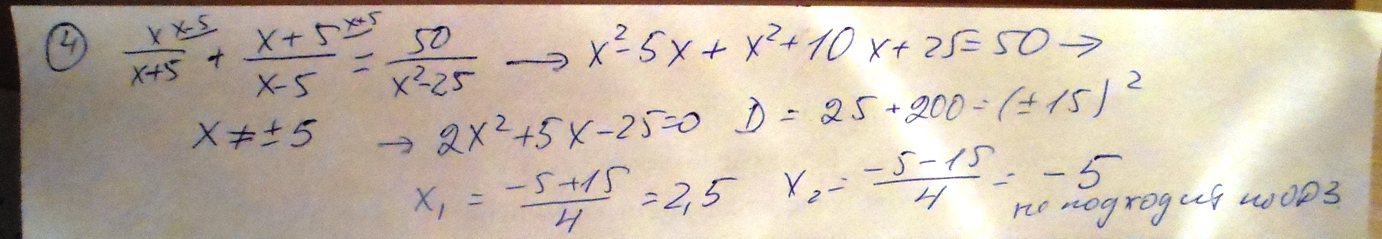 ④ x^{x-5}/(x+5) + (x+5)^{x+5}/(x-5) = 50/(x²-25) → x²-5x + x²+10x+25=50 →
x ≠ ±5 → 2x²+5x-25=0 D = 25+200=(±15)²
x₁ = (-5+15)/4 = 2,5 x₂ = (-5-15)/4 = -5
не подходит по ОДЗ